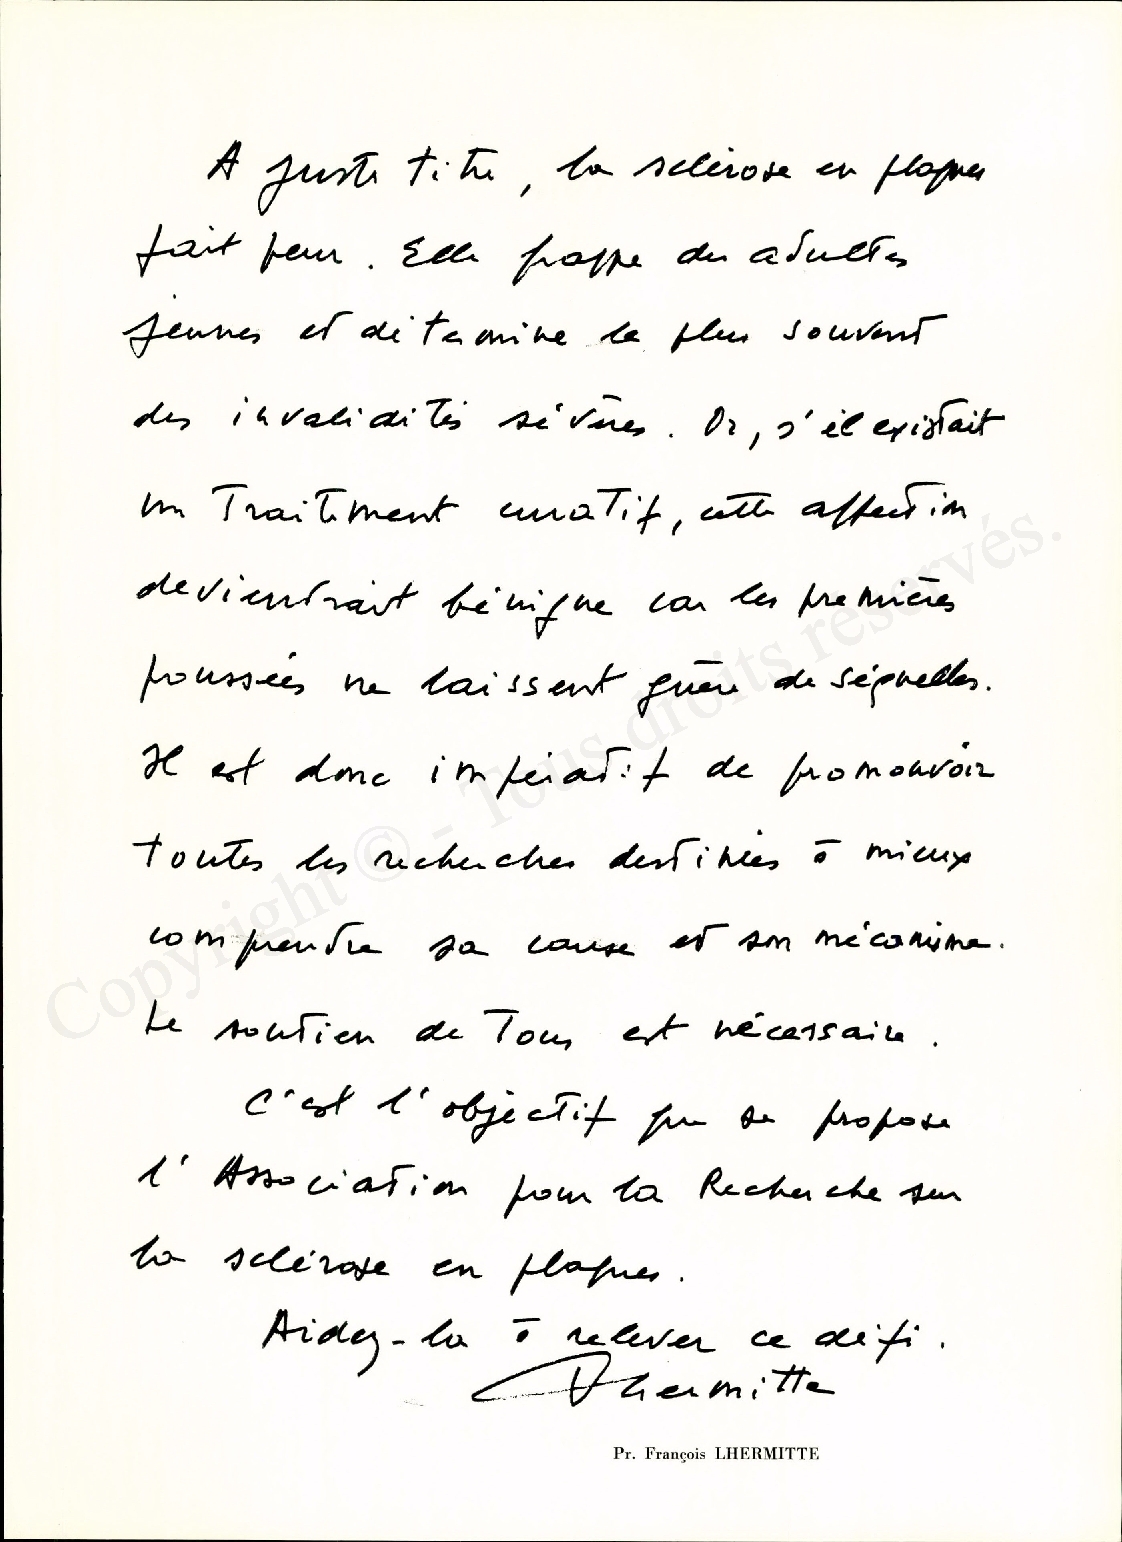 A juste titre, la sclérose en plaques
fait peur. Elle frappe des adultes
jeunes et détermine le plus souvent
des invalidités sévères. Or, s'il existait
un Traitement curatif, cette affection
deviendrait bénigne car les premières
poussées ne laissent guère de séquelles.
Il est donc impératif de promouvoir
toutes les recherches destinées à mieux
comprendre sa cause et son mécanisme.
Le soutien de Tous est nécessaire.
C'est l'objectif que se propose
l'Association pour la Recherche sur
la sclérose en plaques.
Aidez-la à relever ce défi.
Lhermitte
Pr. François LHERMITTE
Copyright © - Tous droits réservés.